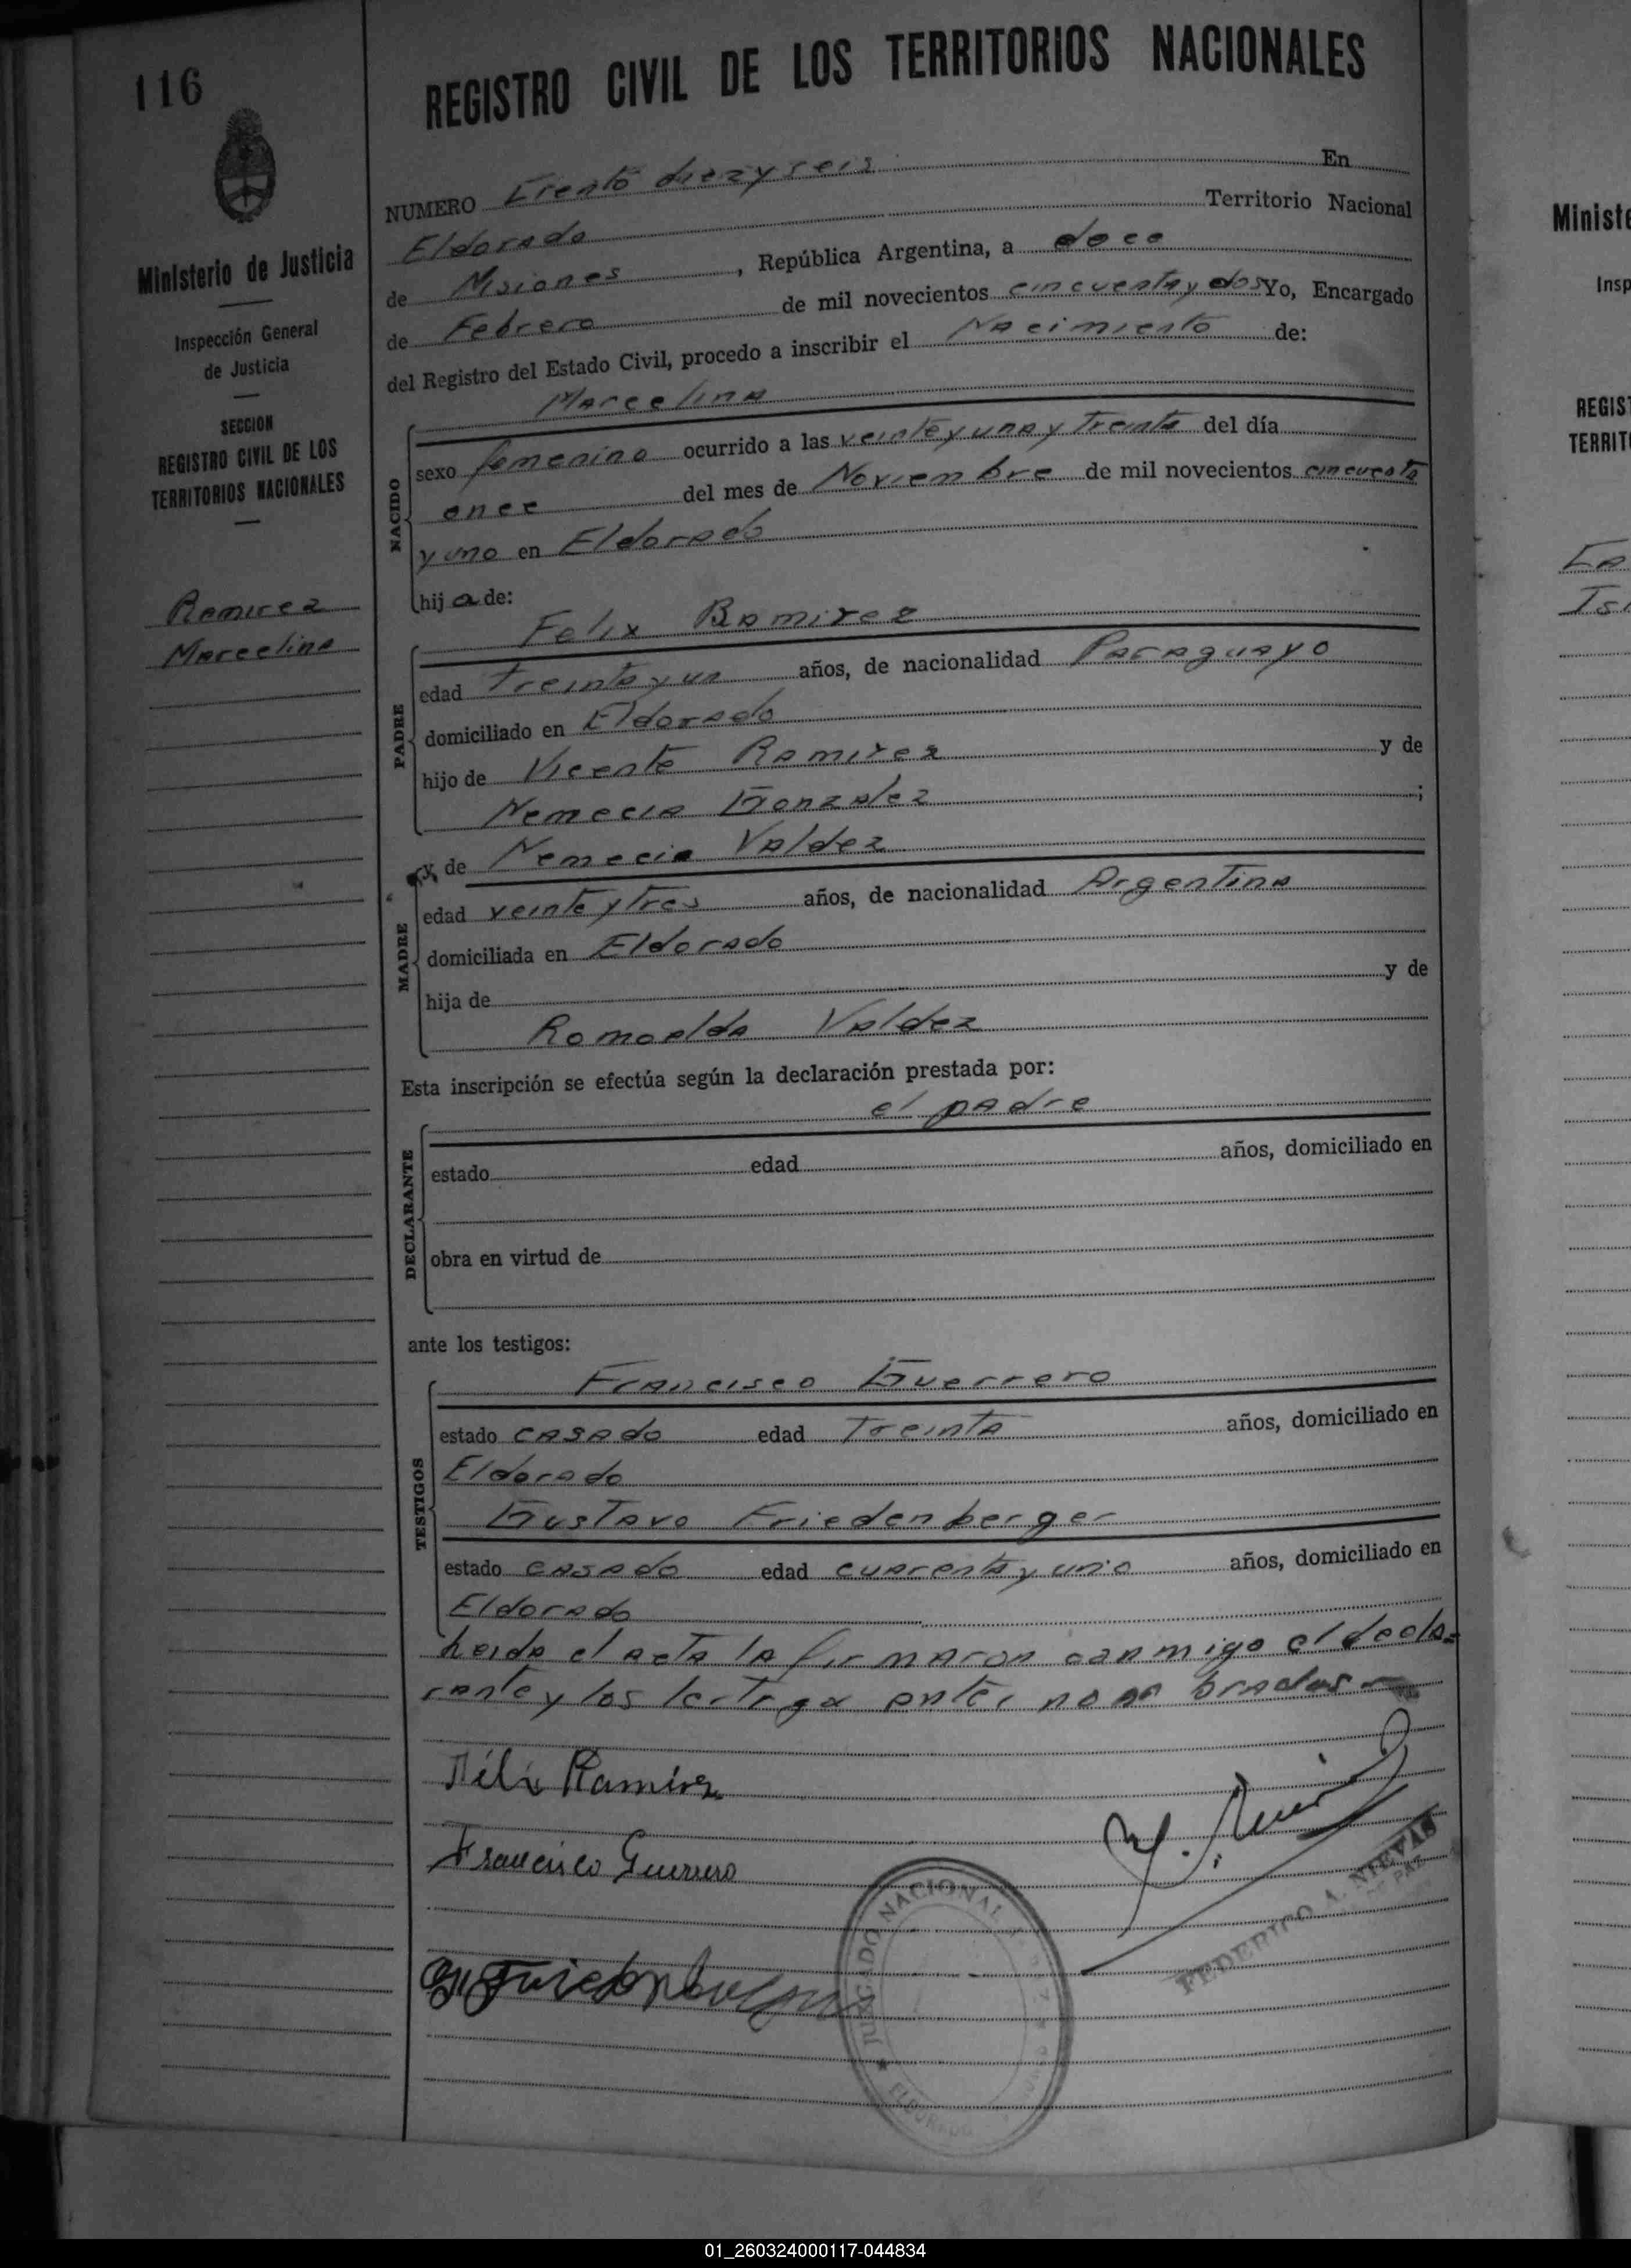 116
REGISTRO CIVIL DE LOS TERRITORIOS NACIONALES
Ministerio de Justicia
Inspección General
de Justicia
SECCION
REGISTRO CIVIL DE LOS
TERRITORIOS NACIONALES
Ramirez
Marcelina
NUMERO Ciento diez y seis En
Eldorado Territorio Nacional
de Misiones, República Argentina, a doce
de Febrero de mil novecientos cincuenta y dos Yo, Encargado
del Registro del Estado Civil, procedo a inscribir el Nacimiento de:
Marcelina
NACIDO
sexo femenino ocurrido a las veinte y una y treinta del día
once del mes de Noviembre de mil novecientos cincuenta
y uno en Eldorado
hija de:
Felix Ramirez
PADRE
edad treinta y un años, de nacionalidad Paraguayo
domiciliado en Eldorado
hijo de Vicente Ramirez y de
Nemecia Gonzalez;
y de Nemecia Valdez
MADRE
edad veinte y tres años, de nacionalidad Argentina
domiciliada en Eldorado
hija de y de
Romoalda Valdez
Esta inscripción se efectúa según la declaración prestada por:
el padre
DECLARANTE
estado edad años, domiciliado en
obra en virtud de
ante los testigos:
Francisco Guerrero
TESTIGOS
estado casado edad Treinta años, domiciliado en
Eldorado
Gustavo Friedenberger
estado casado edad cuarenta y uno años, domiciliado en
Eldorado
Leida el acta la firmaron conmigo el decla-
rante y los testigos antes nombrados
Félix Ramírez
Francisco Guerrero
JUZGADO NACIONAL
ELDORADO
FEDERICO A. NIEVAS
DE PAZ
Ministe
Insp
REGIST
TERRIT
01_260324000117-044834